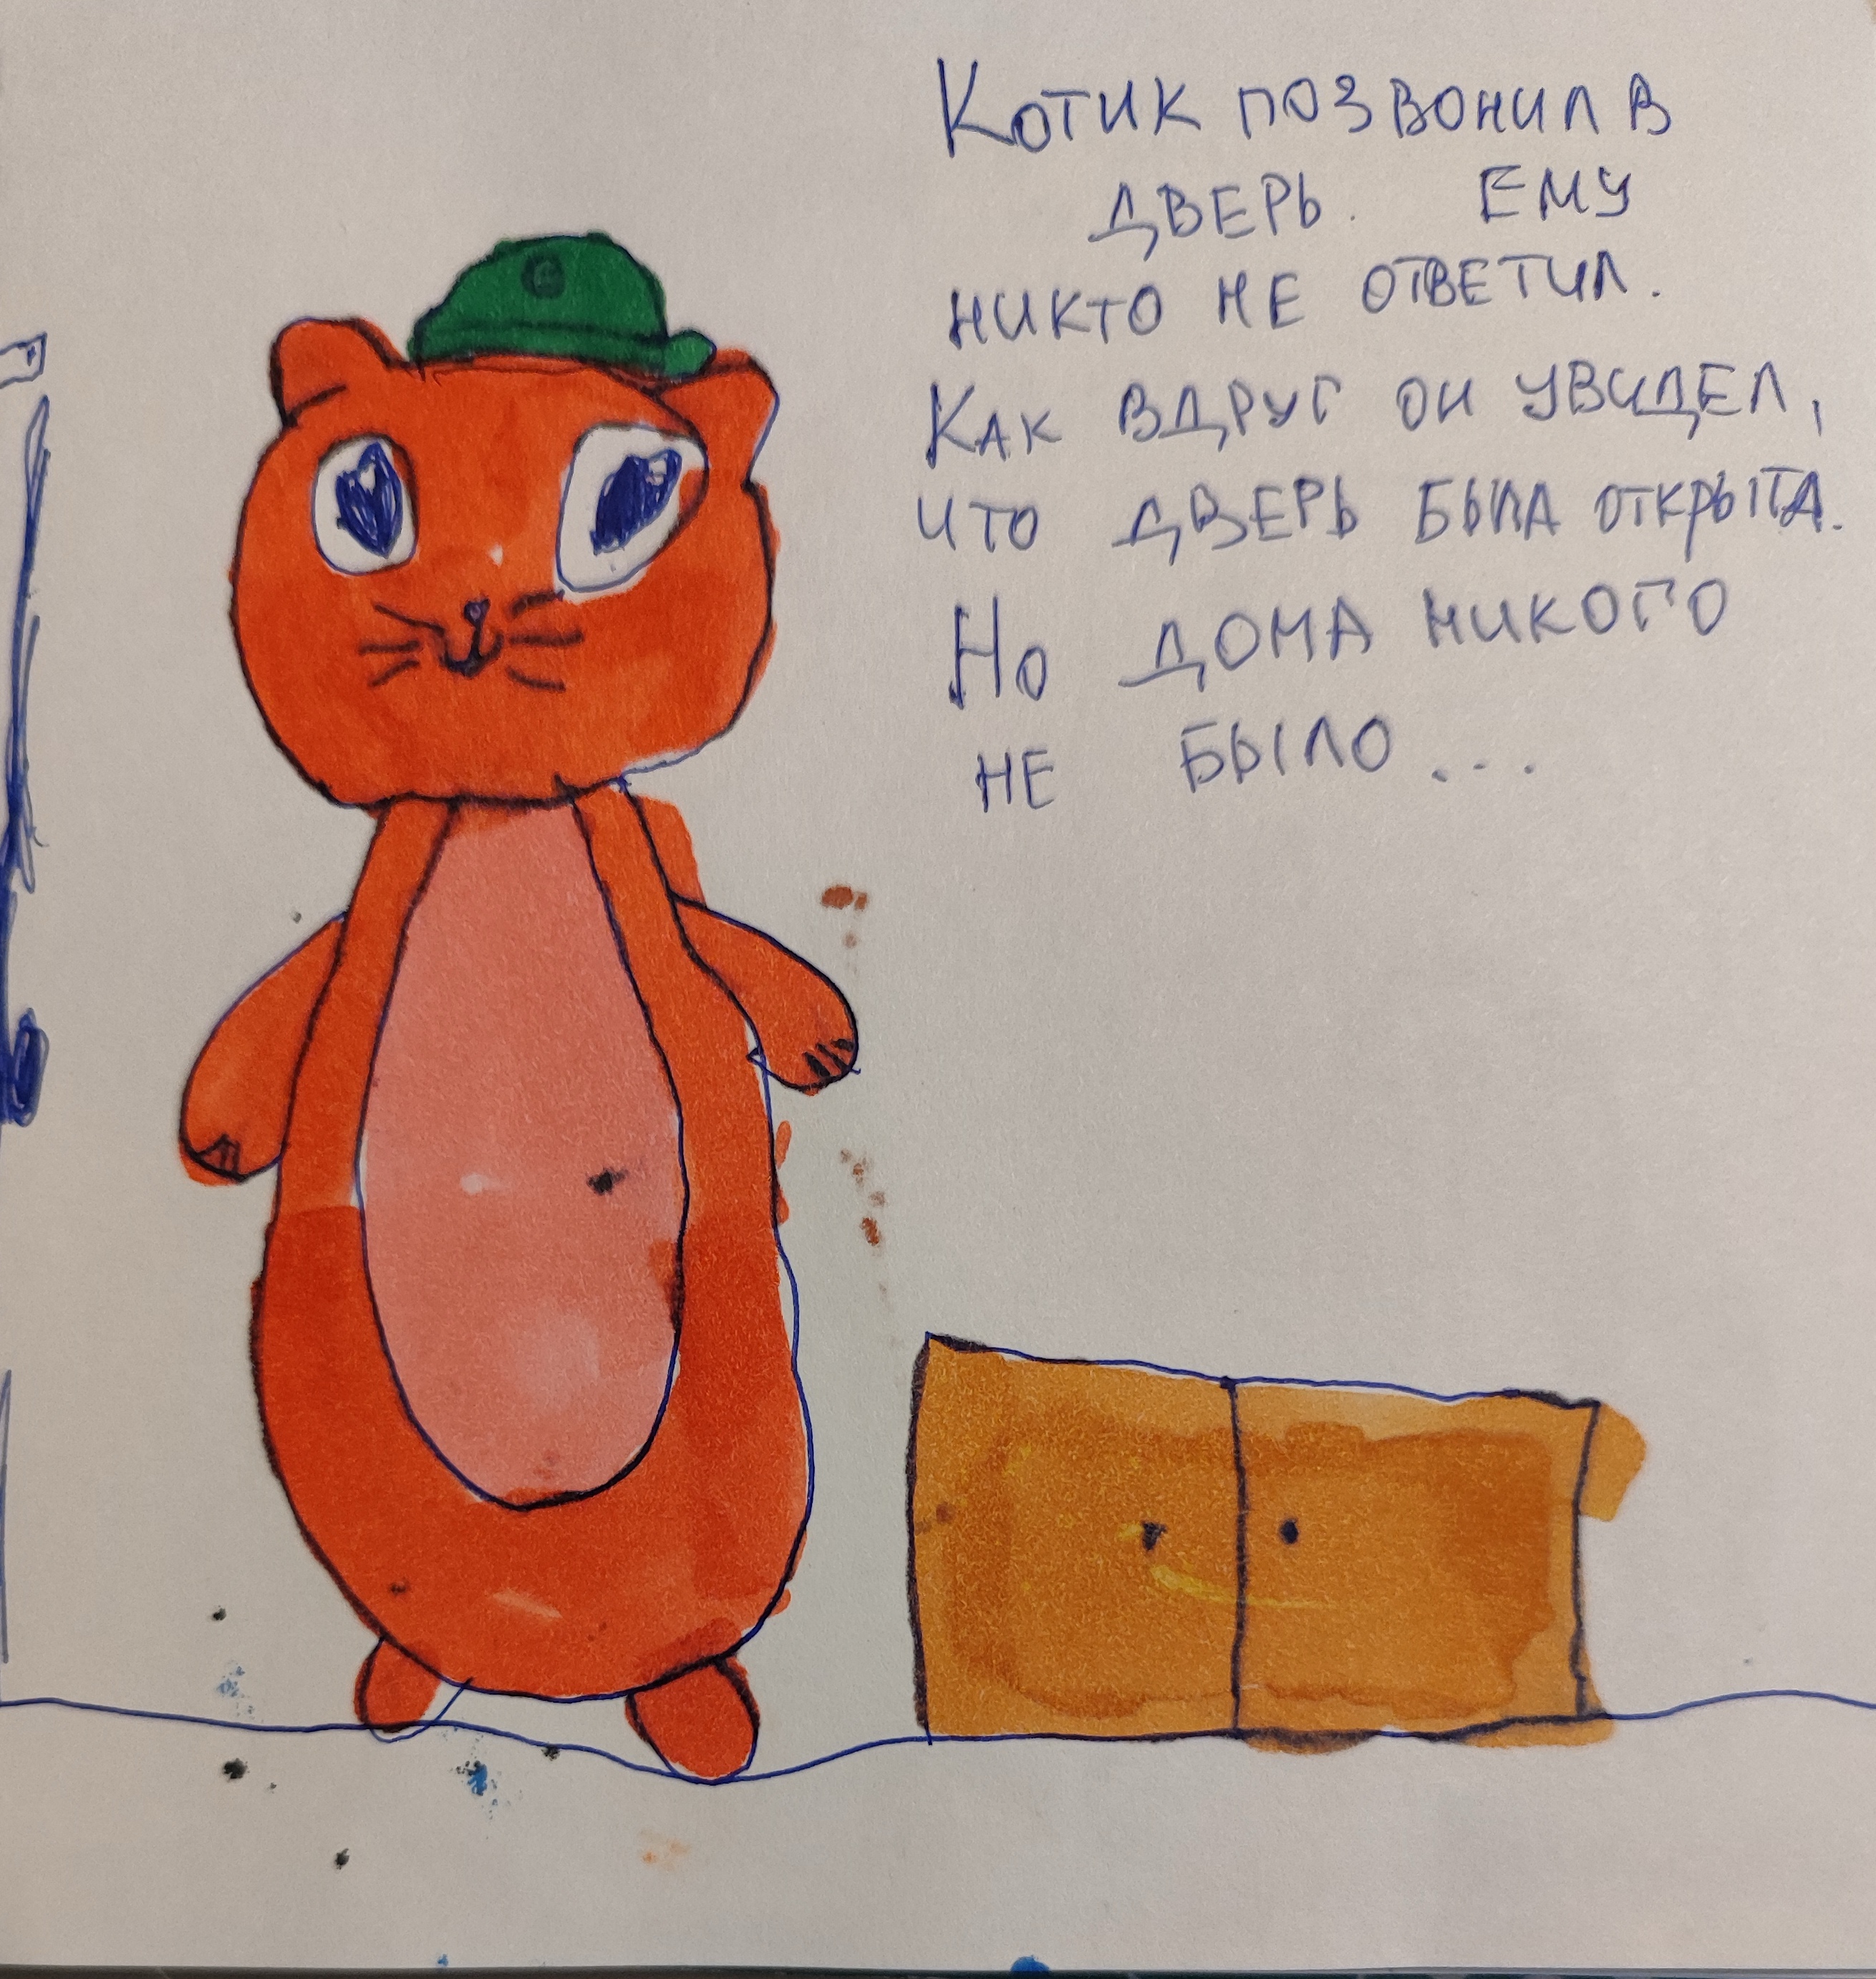 Котик позвонил в
дверь. Ему
никто не ответил.
Как вдруг он увидел,
что дверь была открыта.
Но дома никого
не было...